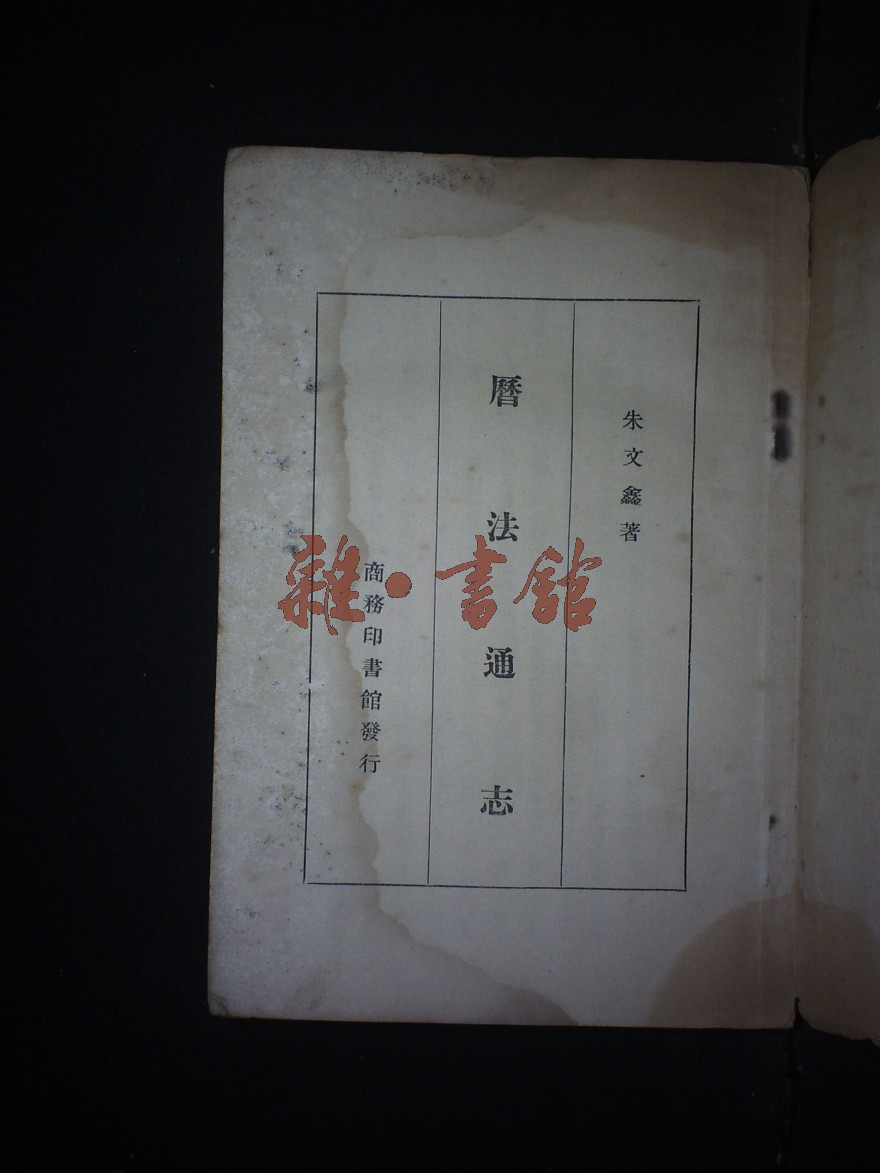 朱文鑫著
曆法通志
商務印書館發行
雜·書館